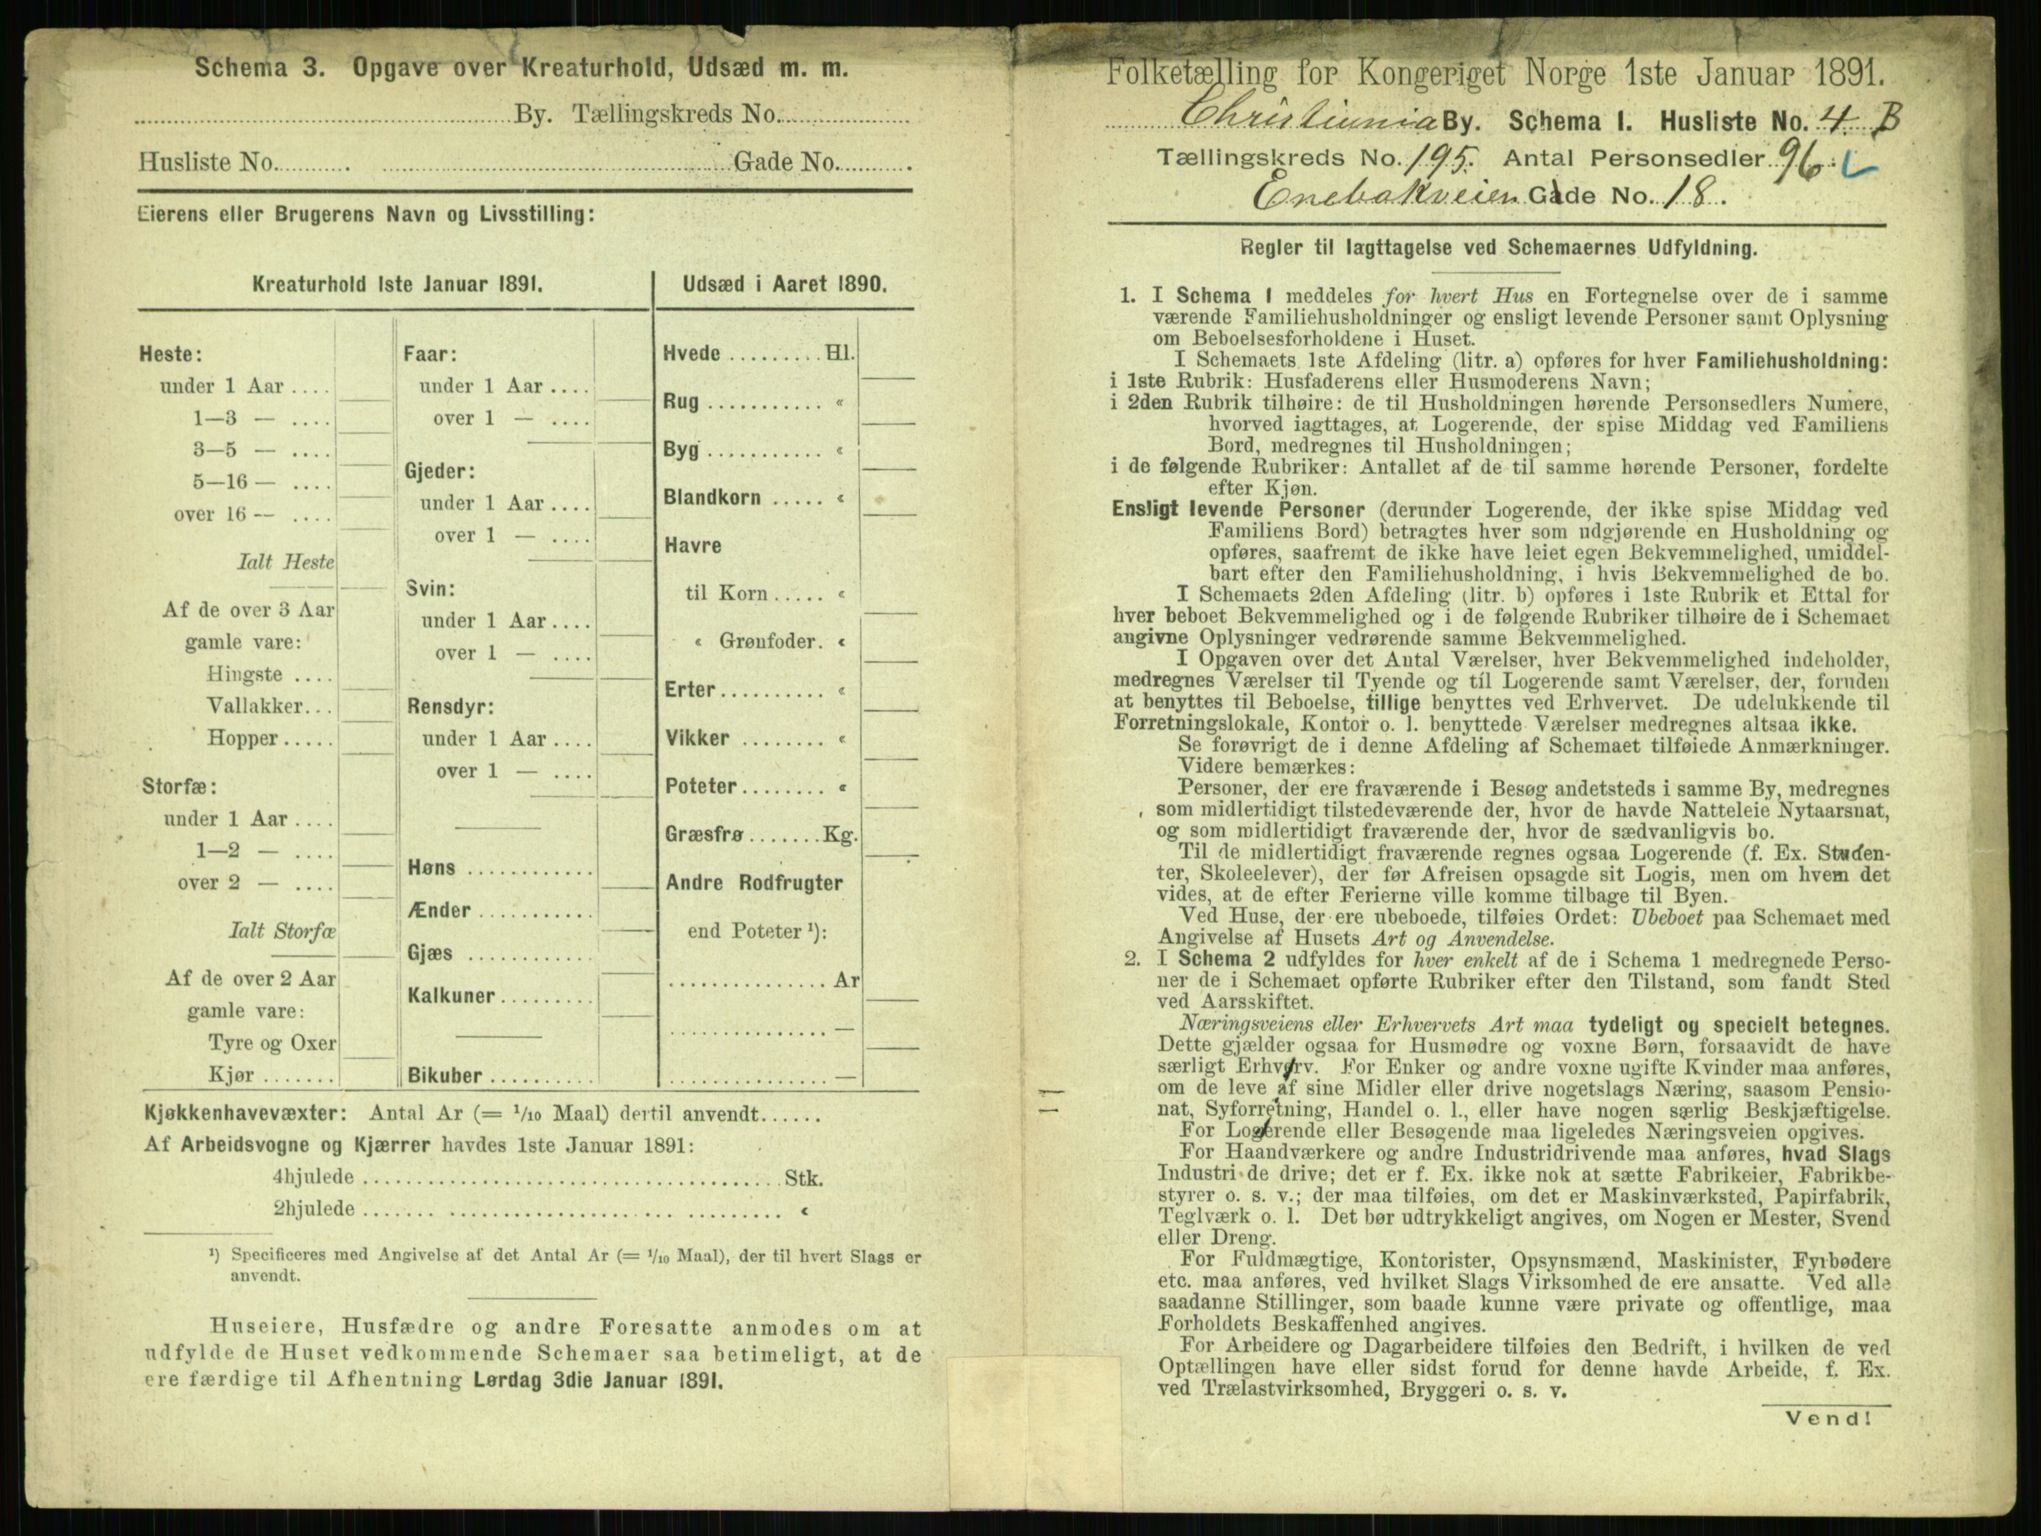 Schema 3. Opgave over Kreaturhold, Udsæd m. m.
By. Tællingskreds No.
Husliste No. Gade No.
Eierens eller Brugerens Navn og Livsstilling:
Kreaturhold 1ste Januar 1891.
Heste:
under 1 Aar ....
1—3 — ....
3—5 — ....
5—16 — ....
over 16 — ....
Ialt Heste
Af de over 3 Aar
gamle vare:
Hingste ....
Vallakker...
Hopper.....
Storfæ:
under 1 Aar ....
1—2 — ....
over 2 — ....
Ialt Storfæ
Af de over 2 Aar
gamle vare:
Tyre og Oxer
Kjør .......
Faar:
under 1 Aar ....
over 1 — ....
Gjeder:
under 1 Aar ....
over 1 — ....
Svin:
under 1 Aar....
over 1 — ....
Rensdyr:
under 1 Aar....
over 1 — ....
Høns ............
Ænder ...........
Gjæs ............
Kalkuner.........
Bikuber ..........
Udsæd i Aaret 1890.
Hvede .........Hl.
Rug ........... «
Byg ........... «
Blandkorn ..... «
Havre
til Korn ..... «
« Grønfoder. «
Erter.......... «
Vikker ........ «
Poteter........ «
Græsfrø .......Kg.
Andre Rodfrugter
end Poteter ¹):
............... Ar
............... —
............... —
Kjøkkenhavevæxter: Antal Ar (= 1/10 Maal) dertil anvendt......
Af Arbeidsvogne og Kjærrer havdes 1ste Januar 1891:
4hjulede ........................................ Stk.
2hjulede ........................................ «
¹) Specificeres med Angivelse af det Antal Ar (= 1/10 Maal), der til hvert Slags er
anvendt.
Huseiere, Husfædre og andre Foresatte anmodes om at
udfylde de Huset vedkommende Schemaer saa betimeligt, at de
ere færdige til Afhentning Lørdag 3die Januar 1891.
Folketælling for Kongeriget Norge 1ste Januar 1891.
Christiania By. Schema 1. Husliste No. 4. B
Tællingskreds No. 195. Antal Personsedler 96.
Enebakveien Gade No. 18.
Regler til Iagttagelse ved Schemaernes Udfyldning.
1. I Schema 1 meddeles for hvert Hus en Fortegnelse over de i samme
værende Familiehusholdninger og ensligt levende Personer samt Oplysning
om Beboelsesforholdene i Huset.
I Schemaets 1ste Afdeling (litr. a) opføres for hver Familiehusholdning:
i 1ste Rubrik: Husfaderens eller Husmoderens Navn;
i 2den Rubrik tilhøire: de til Husholdningen hørende Personsedlers Numere,
hvorved iagttages, at Logerende, der spise Middag ved Familiens
Bord, medregnes til Husholdningen;
i de følgende Rubriker: Antallet af de til samme hørende Personer, fordelte
efter Kjøn.
Ensligt levende Personer (derunder Logerende, der ikke spise Middag ved
Familiens Bord) betragtes hver som udgjørende en Husholdning og
opføres, saafremt de ikke have leiet egen Bekvemmelighed, umiddel-
bart efter den Familiehusholdning, i hvis Bekvemmelighed de bo.
I Schemaets 2den Afdeling (litr. b) opføres i 1ste Rubrik et Ettal for
hver beboet Bekvemmelighed og i de følgende Rubriker tilhøire de i Schemaet
angivne Oplysninger vedrørende samme Bekvemmelighed.
I Opgaven over det Antal Værelser, hver Bekvemmelighed indeholder,
medregnes Værelser til Tyende og til Logerende samt Værelser, der, foruden
at benyttes til Beboelse, tillige benyttes ved Erhvervet. De udelukkende til
Forretningslokale, Kontor o. l. benyttede Værelser medregnes altsaa ikke.
Se forøvrigt de i denne Afdeling af Schemaet tilføiede Anmærkninger.
Videre bemærkes:
Personer, der ere fraværende i Besøg andetsteds i samme By, medregnes
som midlertidigt tilstedeværende der, hvor de havde Natteleie Nytaarsnat,
og som midlertidigt fraværende der, hvor de sædvanligvis bo.
Til de midlertidigt fraværende regnes ogsaa Logerende (f. Ex. Studen-
ter, Skoleelever), der før Afreisen opsagde sit Logis, men om hvem det
vides, at de efter Ferierne ville komme tilbage til Byen.
Ved Huse, der ere ubeboede, tilføies Ordet: Ubeboet paa Schemaet med
Angivelse af Husets Art og Anvendelse.
2. I Schema 2 udfyldes for hver enkelt af de i Schema 1 medregnede Perso-
ner de i Schemaet opførte Rubriker efter den Tilstand, som fandt Sted
ved Aarsskiftet.
Næringsveiens eller Erhvervets Art maa tydeligt og specielt betegnes.
Dette gjælder ogsaa for Husmødre og voxne Børn, forsaavidt de have
særligt Erhverv. For Enker og andre voxne ugifte Kvinder maa anføres,
om de leve af sine Midler eller drive nogetslags Næring, saasom Pensio-
nat, Syforretning, Handel o. l., eller have nogen særlig Beskjæftigelse.
For Logerende eller Besøgende maa ligeledes Næringsveien opgives.
For Haandværkere og andre Industridrivende maa anføres, hvad Slags
Industri de drive; det er f. Ex. ikke nok at sætte Fabrikeier, Fabrikbe-
styrer o. s. v.; der maa tilføies, om det er Maskinværksted, Papirfabrik,
Teglværk o. l. Det bør udtrykkeligt angives, om Nogen er Mester, Svend
eller Dreng.
For Fuldmægtige, Kontorister, Opsynsmænd, Maskinister, Fyrbødere
etc. maa anføres, ved hvilket Slags Virksomhed de ere ansatte. Ved alle
saadanne Stillinger, som baade kunne være private og offentlige, maa
Forholdets Beskaffenhed angives.
For Arbeidere og Dagarbeidere tilføies den Bedrift, i hvilken de ved
Optællingen have eller sidst forud for denne havde Arbeide, f. Ex.
ved Trælastvirksomhed, Bryggeri o. s. v.
Vend!